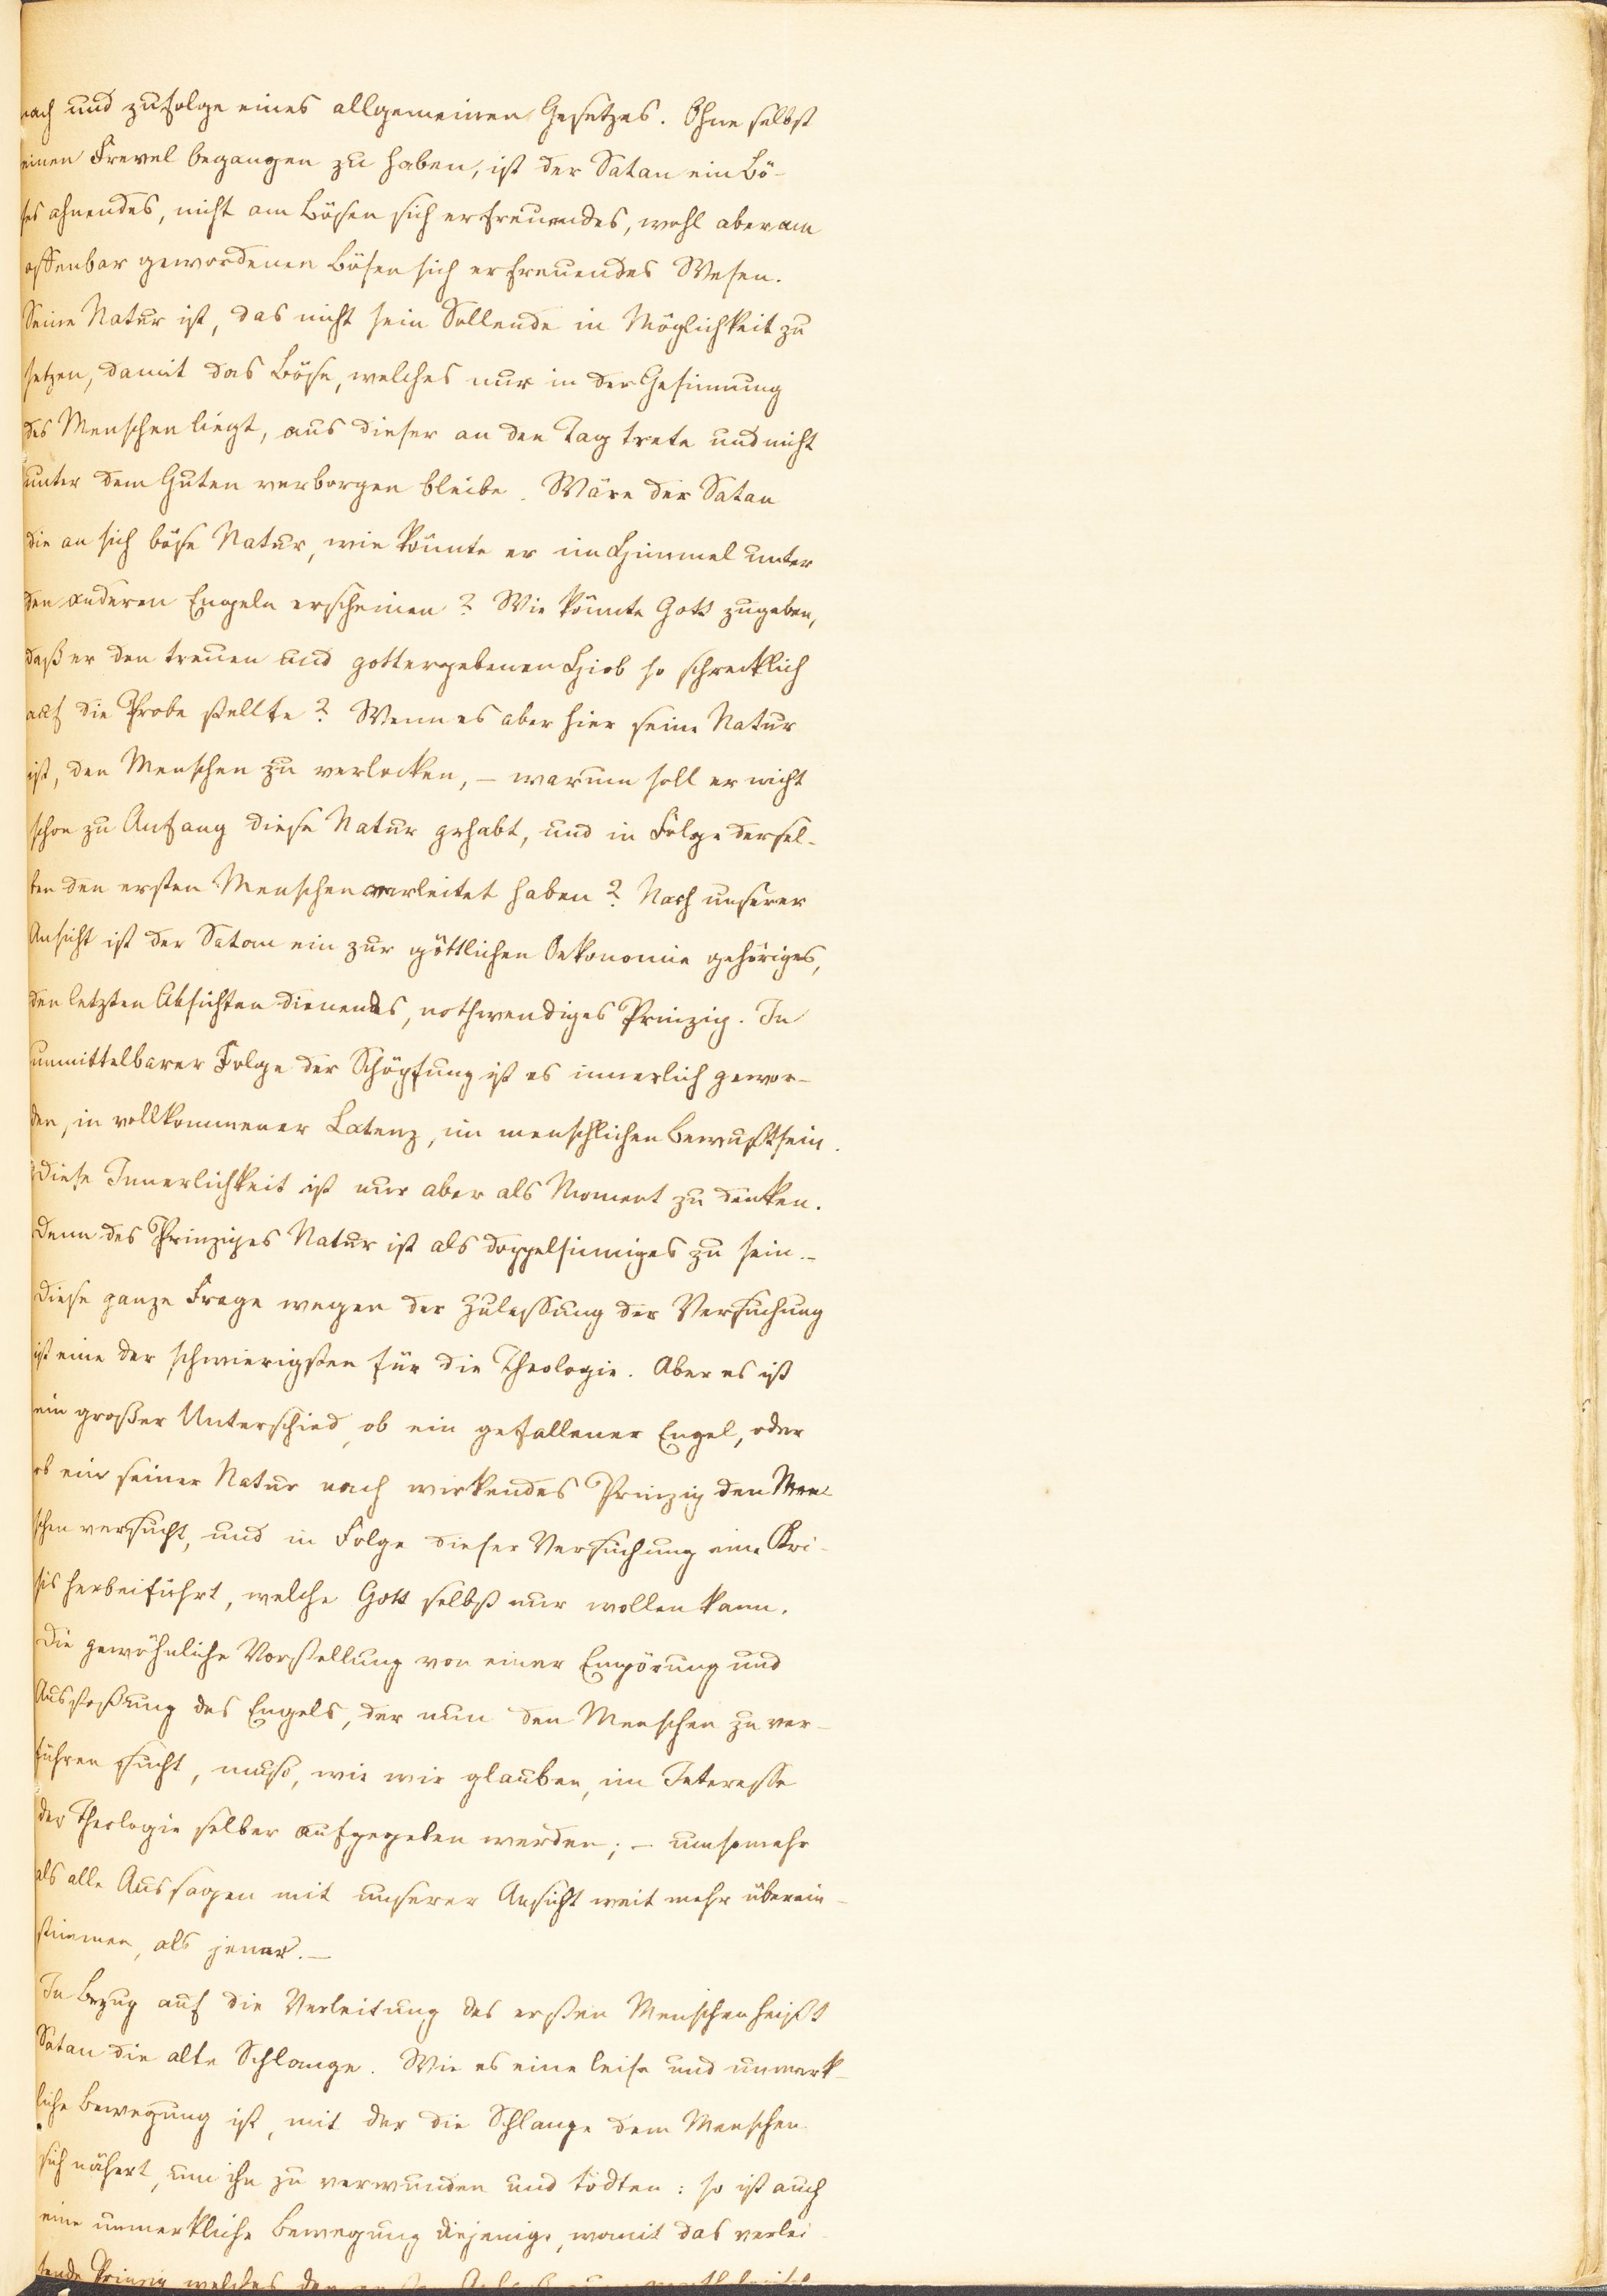 nach und zufolge eines allgemeinen Gesetzes. Ohne selbst
einen Frevel begangen zu haben, ist der Satan ein Bö-
ses ahnendes, nicht am Bösen sich erfreuendes, wohl aber am
offenbar gewordenen Bösen sich erfreuendes Wesen.
Seine Natur ist, das nicht sein Sollende in Möglichkeit zu
setzen, damit das Böse, welches nur in der Gesinnung
des Menschen liegt, aus dieser an den Tag trete und nicht
unter dem Guten verborgen bleibe. Wäre der Satan
die an sich böse Natur, wie könnte er im Himmel unter
den anderen Engeln erscheinen? Wie könnte Gott zugeben,
daß er den treuen und gottergebenen Hiob so schrecklich
auf die Probe stellte? Wenn es aber hier seine Natur
ist, den Menschen zu verlocken, – warum soll er nicht
schon zu Anfang diese Natur gehabt, und in Folge dersel-
ben den ersten Menschen verleitet haben? Nach unserer
Ansicht ist der Satan ein zur göttlichen Oekonomie gehöriges,
den letzten Absichten dienendes, nothwendiges Prinzip. In
unmittelbarer Folge der Schöpfung ist es innerlich gewor-
den, in vollkommener Latenz, im menschlichen Bewußtsein.
Diese Innerlichkeit ist nur aber als Moment zu denken.
Denn des Prinzipes Natur ist als doppelsinniges zu sein. –
Diese ganze Frage wegen der Zulassung der Versuchung
ist eine der schwierigsten für die Theologie. Aber es ist
ein großer Unterschied, ob ein gefallener Engel, oder
ob ein seiner Natur nach wirkendes Prinzip den Men-
schen versucht, und in Folge dieser Versuchung eine Kri-
sis herbeiführt, welche Gott selbst nur wollen kann.
Die gewöhnliche Vorstellung von einer Empörung und
Ausstoßung des Engels, der nun den Menschen zu ver-
führen sucht, muss, wie wir glauben, im Interesse
der Theologie selber aufgegeben werden; – umsomehr
als alle Aussagen mit unserer Ansicht weit mehr überein-
stimmen, als jener. –
In Bezug auf die Verleitung des ersten Menschen heißt
Satan die alte Schlange. Wie es eine leise und unmerk-
liche Bewegung ist, mit der die Schlange dem Menschen
sich nähert, um ihn zu verwunden und tödten: so ist auch
eine unmerkliche Bewegung diejenige, womit das verlei-
tende Prinzip welches